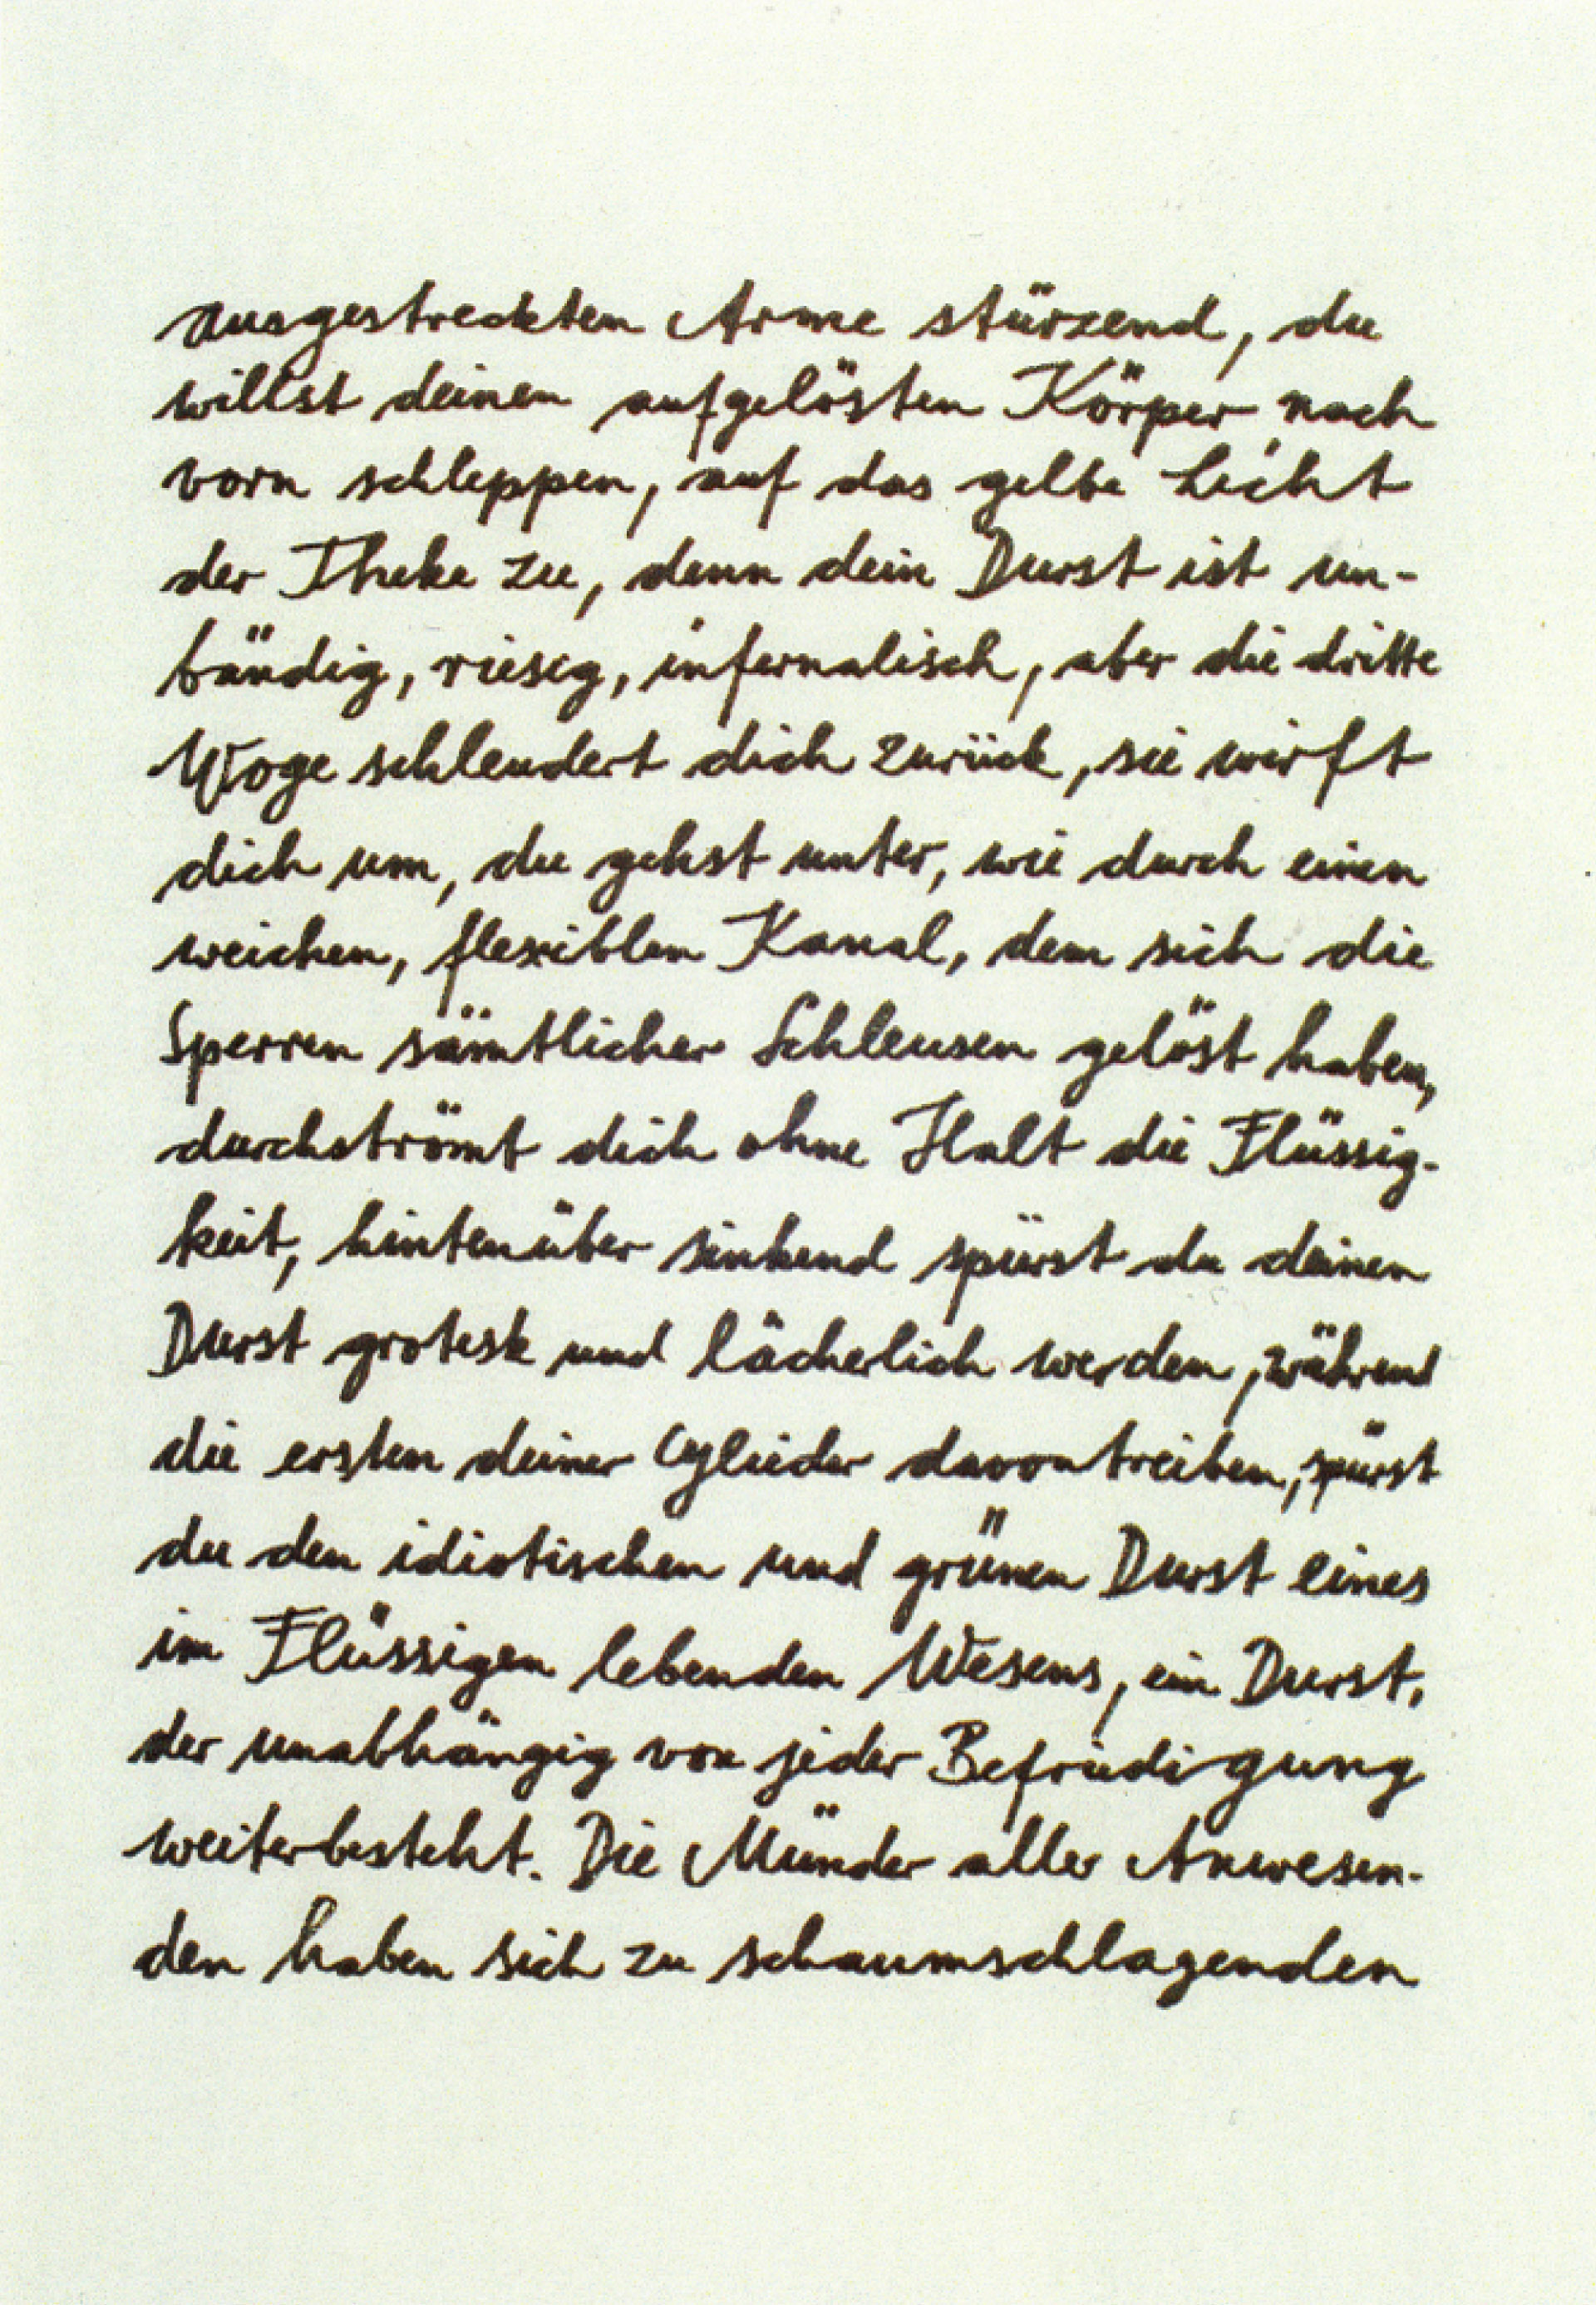 ausgestreckten Arme stürzend, du
willst deinen aufgelösten Körper nach
vorn schleppen, auf das gelbe Licht
der Theke zu, denn dein Durst ist un-
bändig, riesig, infernalisch, aber die dritte
Woge schleudert dich zurück, sie wirft
dich um, du gehst unter, wie durch einen
weichen, flexiblen Kanal, dem sich die
Sperren sämtlicher Schleusen gelöst haben,
durchströmt dich ohne Halt die Flüssig-
keit, hintenüber sinkend spürst du deinen
Durst grotesk und lächerlich werden, während
die ersten deiner Glieder davontreiben, spürst
du den idiotischen und grünen Durst eines
im Flüssigen lebenden Wesens, ein Durst,
der unabhängig von jeder Befriedigung
weiterbesteht. Die Münder aller Anwesen-
den haben sich zu schaumschlagenden